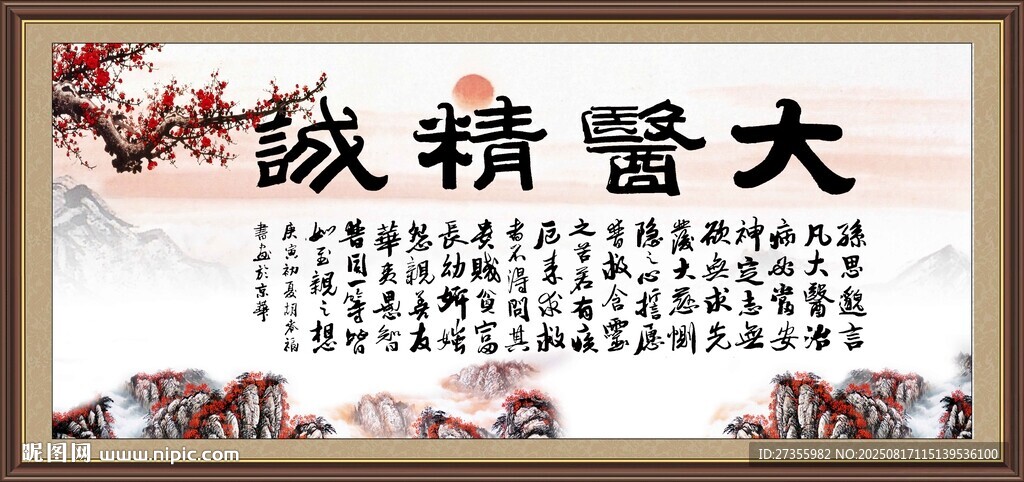 大醫精誠
孫思邈言
凡大醫治
病必當安
神定志無
欲無求先
發大慈惻
隐之心誓愿
普救含靈
之苦若有疾
厄来求救
者不得問其
貴賤貧富
長幼妍媸
怨親善友
華夷愚智
普同一等皆
如至親之想
庚寅初夏胡春福
書画於京華
昵图网 www.nipic.com
ID:27355982 NO:20250817115139536100